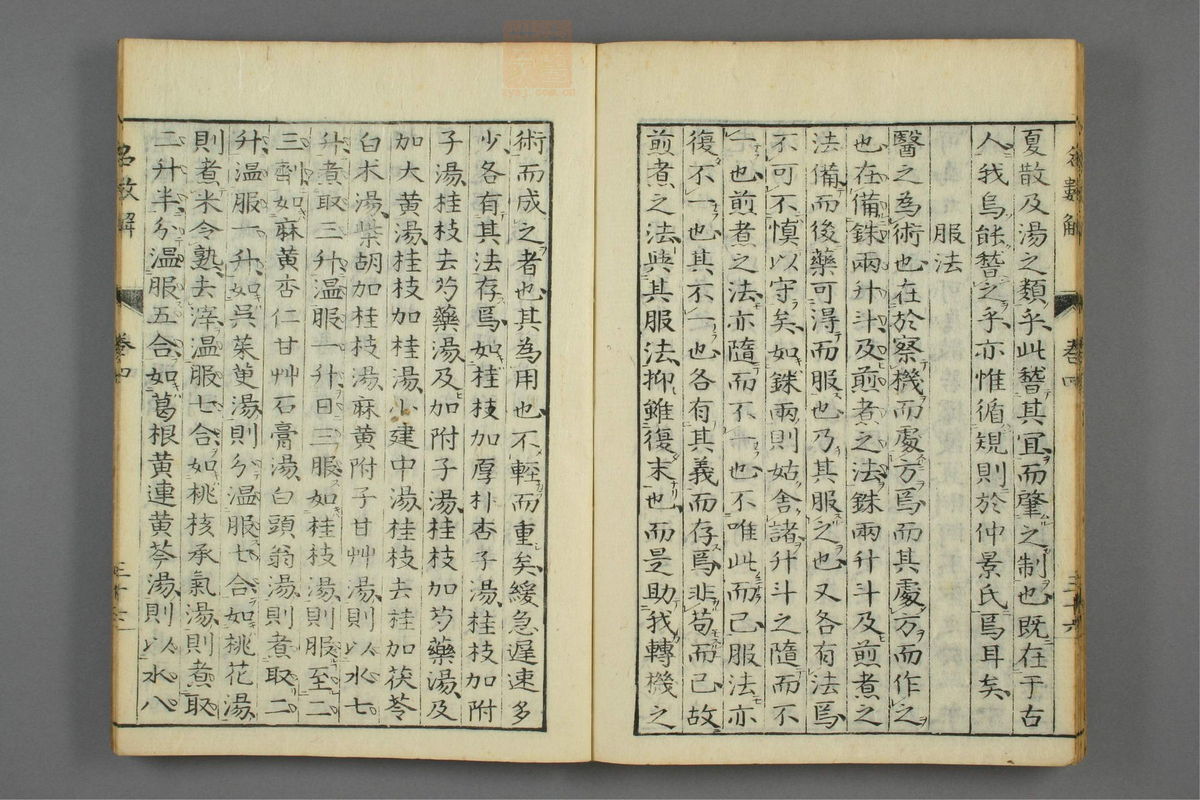 夏散及湯之類乎此瞀其宜而肇之制也既在于古
人我烏能瞀之乎亦惟循規則於仲景氏焉耳矣
服法
醫之為術也在於察機而處方焉而其處方而作之
也在備銖兩升斗及煎煮之法銖兩升斗及煎煮之
法備而後藥可得而服也乃其服之也又各有法焉
不可不慎以守矣如銖兩則姑舍諸升斗之隨而不
一也煎煮之法亦隨而不一也不唯此而已服法亦
復不一也其不一也各有其義而存焉非苟而已故
煎煮之法與其服法抑雖復末也而是助我轉機之
術而成之者也其為用也不輕而重矣緩急遲速多
少各有其法存焉如桂枝加厚朴杏子湯桂枝加附
子湯桂枝去芍藥湯及加附子湯桂枝加芍藥湯及
加大黃湯桂枝加桂湯小建中湯桂枝去桂加茯苓
白朮湯柴胡加桂枝湯麻黃附子甘艸湯則以水七
升煮取三升溫服一升日三服如桂枝湯則服至二
三劑如麻黃杏仁甘艸石膏湯白頭翁湯則煮取二
升溫服一升如吳茱萸湯則分溫服七合如桃花湯
則煮米令熟去滓溫服七合如桃核承氣湯則煮取
二升半分溫服五合如葛根黃連黃芩湯則以水八
卷四